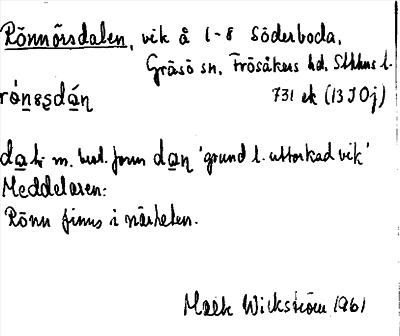 Rönnörsdalen, vik å 1-8 Söderboda,
Gräsö sn, Frösåkers hd, Sthlms l.
731 ek (13 I 0j)
da m. best. form dan 'grund l. uttorkad vik'
Meddelaren:
Rönn finns i närheten.
Wickström 1961